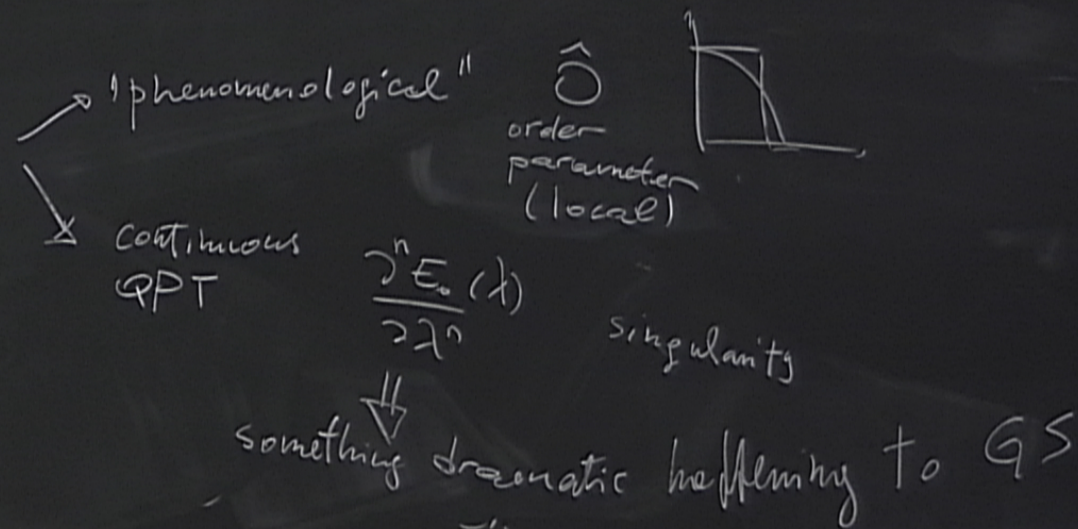 "phenomenological"
Ô
order
parameter
(local)
continuous
QPT
∂ⁿE₀(λ)
∂λⁿ
singularity
⇓
something dramatic happening to GS